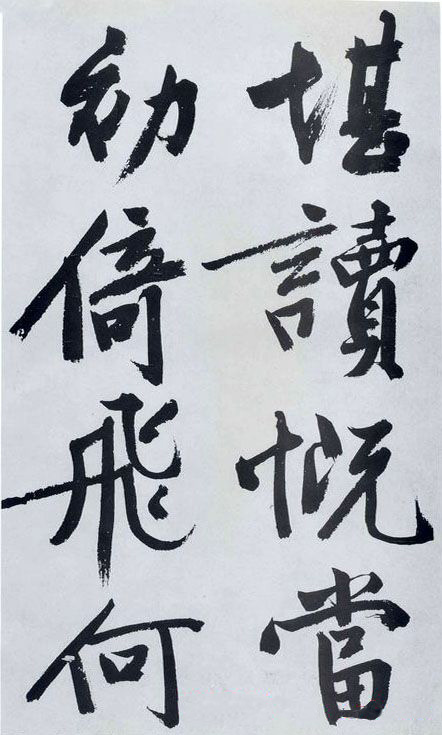 堪讀慨當
初倚飛何